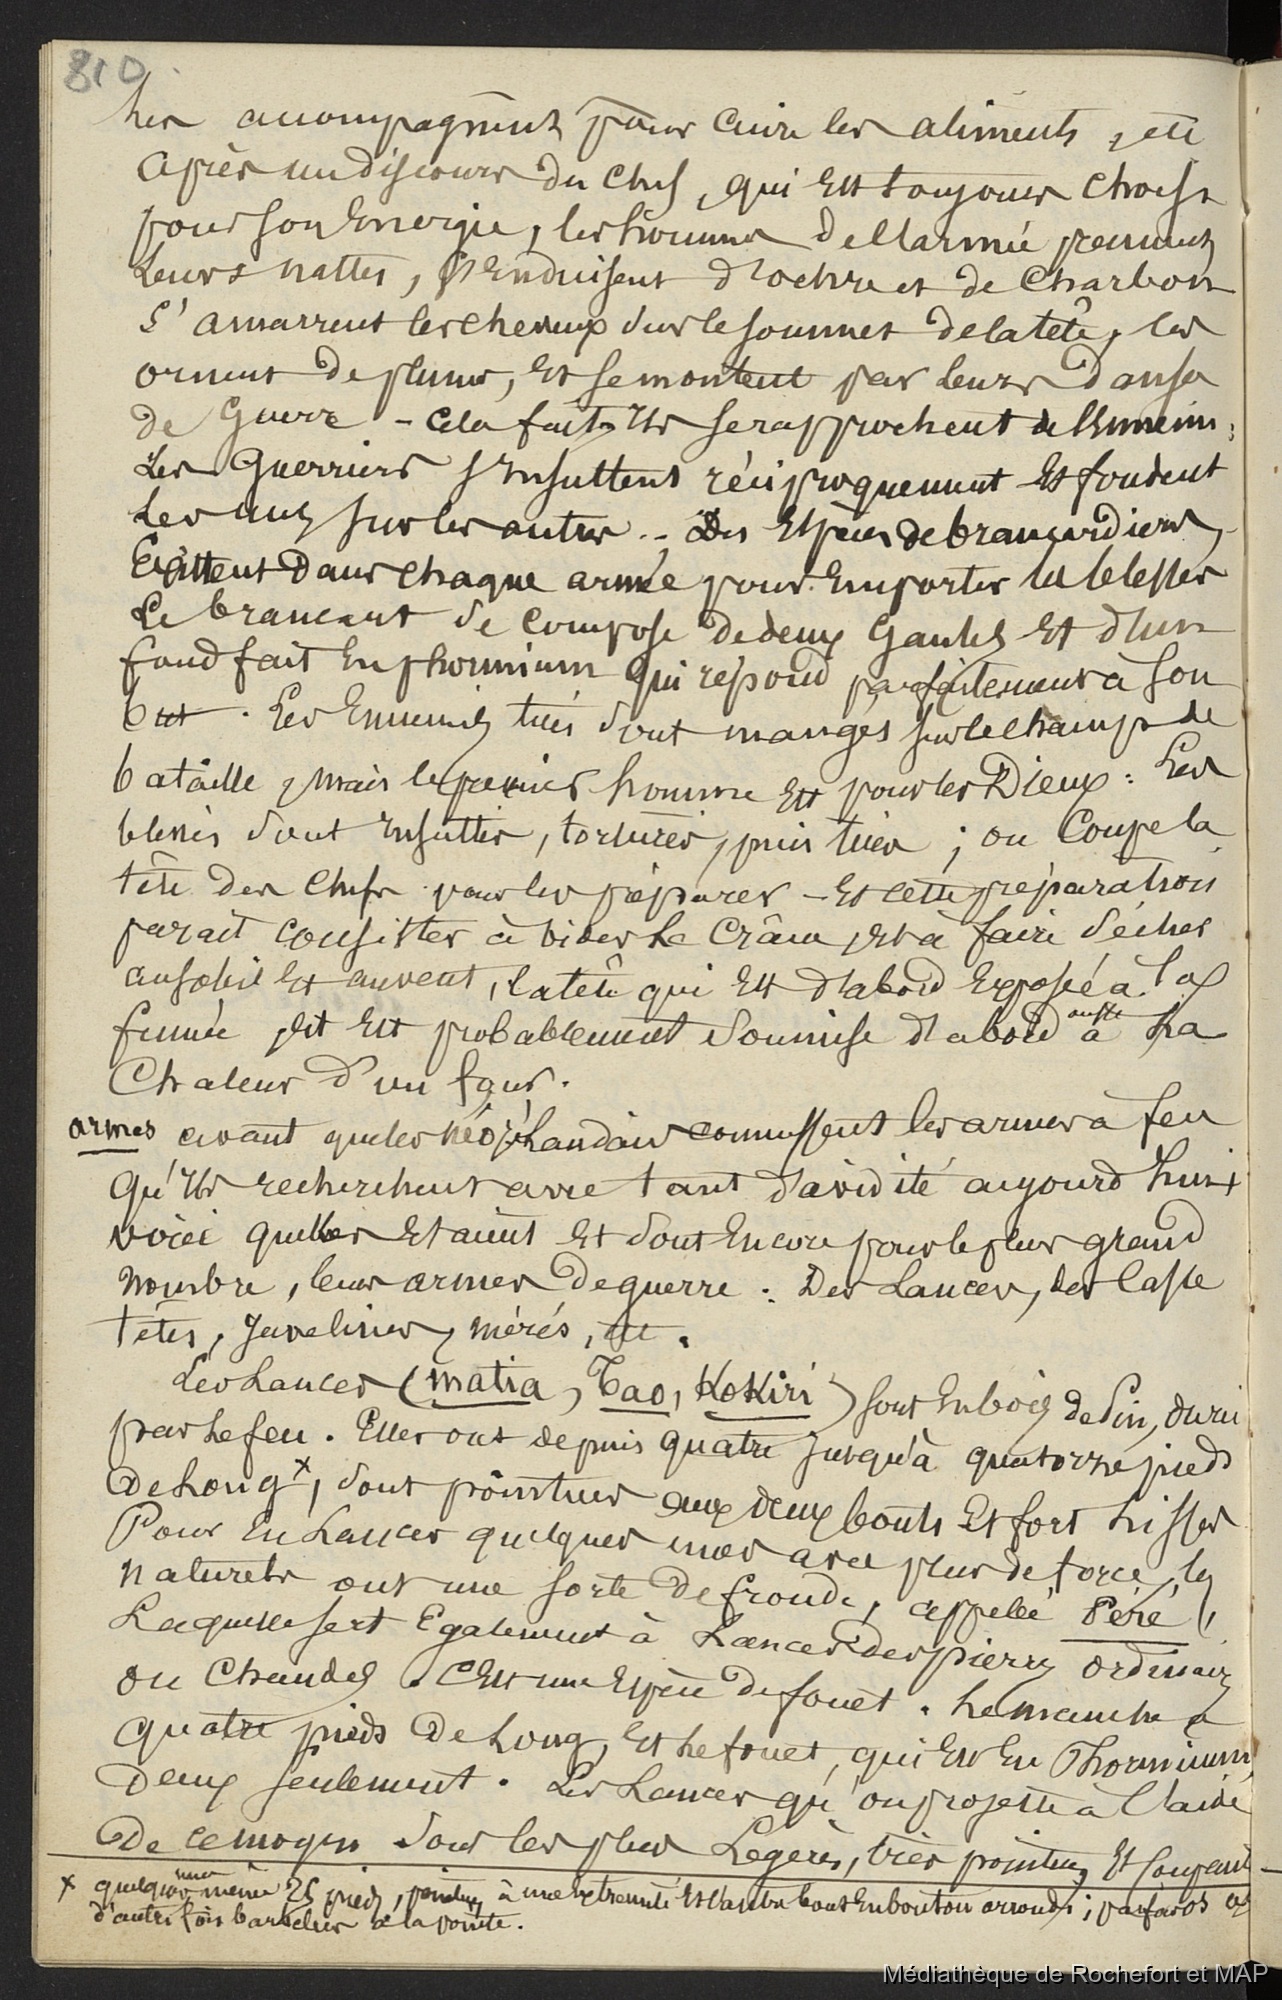 810
les accompagnent pour cuire les aliments, etc
Après un discours du chef, qui est toujours choisi
pour son énergie, les hommes de l'armée prennent
leurs nattes, s'enduisent d'ochre et de charbon
s'amarrent les cheveux sur le sommet de la tête, les
ornent de plumes, et se montent par leurs danses
de guerre - cela fait, ils se rapprochent de l'ennemi;
Les guerriers s'insultent réciproquement et fondent
les uns sur les autres. - Des espèces de brancardiers,
existent dans chaque armée pour emporter les blessés
Le brancart se compose de deux gaules et d'un
fond fait en phormium qui répond parfaitement à son
but. Les ennemis tués sont mangés sur le champ de
bataille, mais le premier homme est pour les Dieux: Les
blessés sont insultés, torturés, puis tués; on coupe la
tête des chefs pour les préparer - et cette préparation
parait consister à vider le crâne, et à faire sécher
au soleil et au vent, la tête qui est d'abord exposée à la
fumée, et est probablement soumise d'abord aussi à la
chaleur d'un four.
armes avant que les néozélandais connussent les armes à feu
qu'ils recherchent avec tant d'avidité aujourd'hui,
voici quelles étaient et sont encore pour le plus grand
nombre, leurs armes de guerre: Des lances, des casse
têtes, javelines, mérés, etc.
Les lances (matia, Tao, KoKiri) sont en bois de Pin, durci
par le feu. Elles ont depuis quatre jusqu'à quatorze pieds
de long x, sont pointues aux deux bouts et fort lisses
Pour en lancer quelques unes avec plus de force, les
naturels ont une sorte de fronde, appelée Péré,
laquelle sert également à lancer des pierres ordinaires
ou chaudes. C'est une espèce de fouet. Le manche a
quatre pieds de long, et le fouet, qui est en Phormium,
deux seulement. Les lances qu'on projette à l'aide
de ce moyen sont les plus légères, très pointues et coupantes
x quelques unes même 25 pieds, pointues à une extrémité et l'autre bout en bouton arrondi; parfois os
d'autres fois barbelées à la pointe.
Médiathèque de Rochefort et MAP